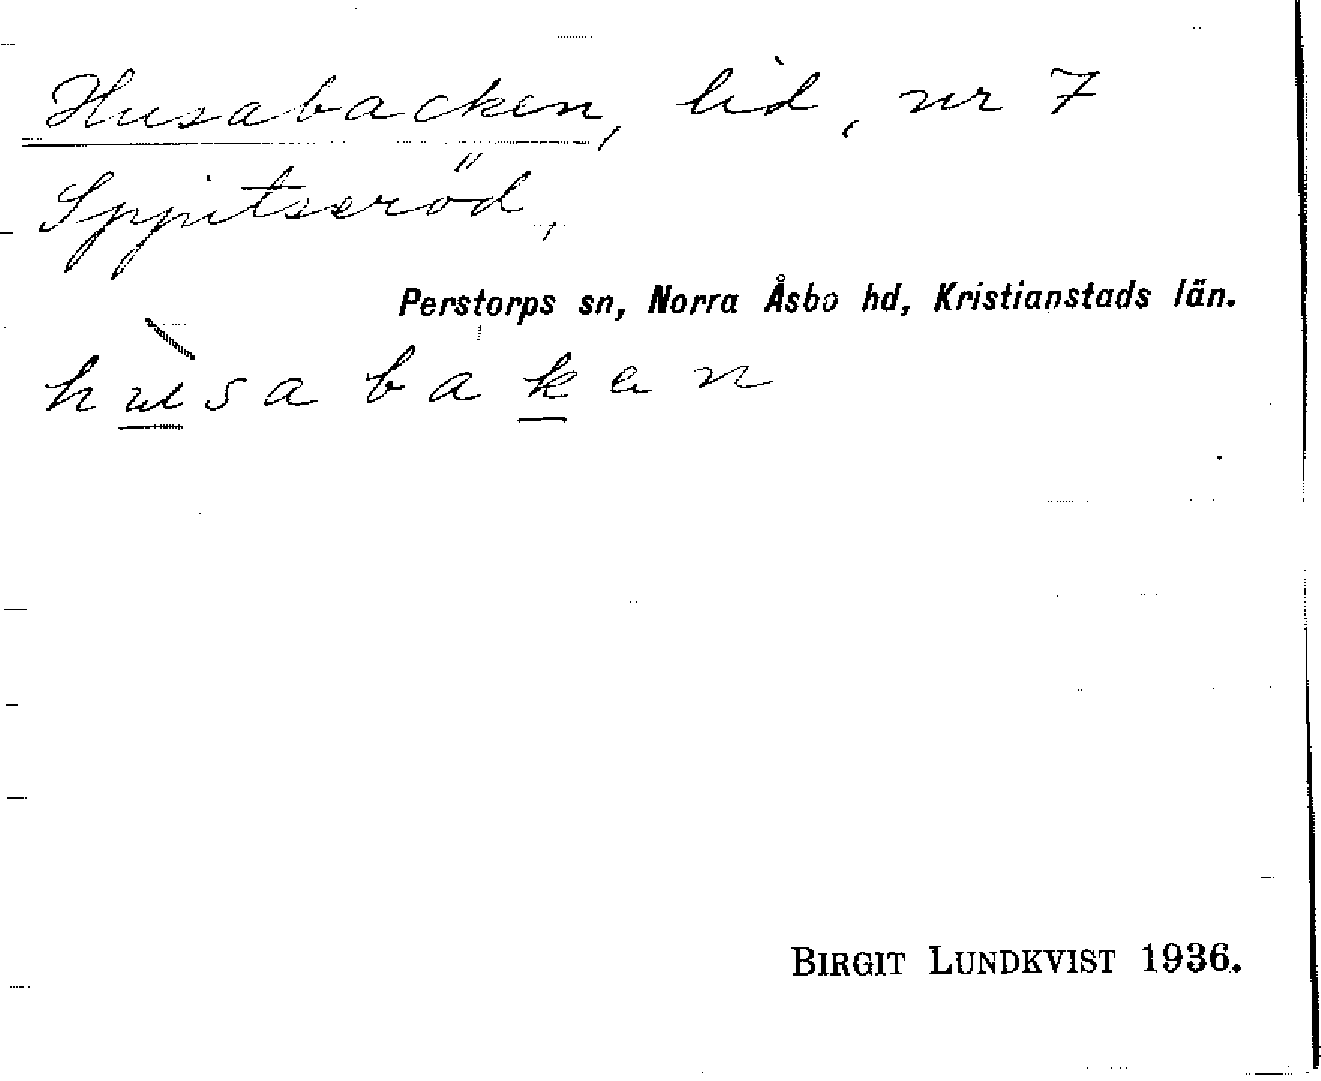 Husabacken, lid, nr 7
Spjutseröd,
Perstorps sn, Norra Åsbo hd, Kristianstads län.
hùsabakan
BIRGIT LUNDKVIST 1936.